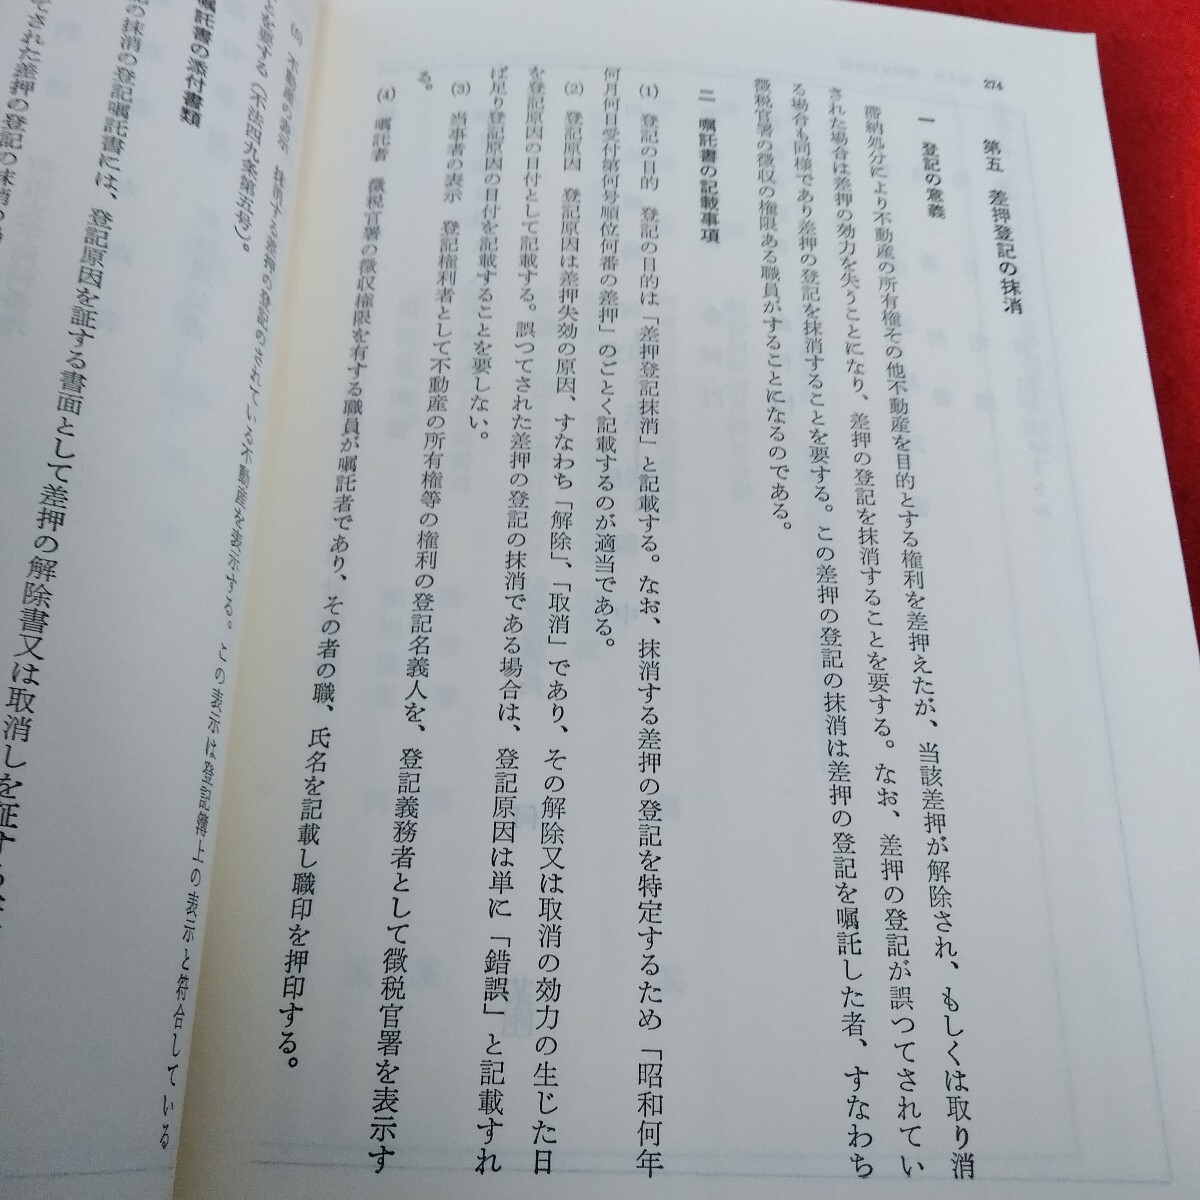 274
第五　差押登記の抹消
一　登記の意義
滞納処分により不動産の所有権その他不動産を目的とする権利を差押えたが、当該差押が解除され、もしくは取り消
された場合は差押の効力を失うことになり、差押の登記を抹消することを要する。なお、差押の登記が誤つてされてい
る場合も同様であり差押の登記を抹消することを要する。この差押の登記の抹消は差押の登記を嘱託した者、すなわち
徴税官署の徴収の権限ある職員がすることになるのである。
二　嘱託書の記載事項
(1)　登記の目的　登記の目的は「差押登記抹消」と記載する。なお、抹消する差押の登記を特定するため「昭和何年
何月何日受付第何号順位何番の差押」のごとく記載するのが適当である。
(2)　登記原因　登記原因は差押失効の原因、すなわち「解除」、「取消」であり、その解除又は取消の効力の生じた日
を登記原因の日付として記載する。誤つてされた差押の登記の抹消である場合は、登記原因は単に「錯誤」と記載すれ
ば足り登記原因の日付を記載することを要しない。
(3)　当事者の表示　登記権利者として不動産の所有権等の権利の登記名義人を、登記義務者として徴税官署を表示す
る。
(4)　嘱託者　徴税官署の徴収権限を有する職員が嘱託者であり、その者の職、氏名を記載し職印を押印する。
(5)　不動産の表示　抹消する差押の登記のされている不動産を表示する。この表示は登記簿上の表示と符合している
ことを要する（不法四九条第五号）。
嘱託書の添付書類
の抹消の登記嘱託書には、登記原因を証する書面として差押の解除書又は取消しを証する
てされた差押の登記の抹消の